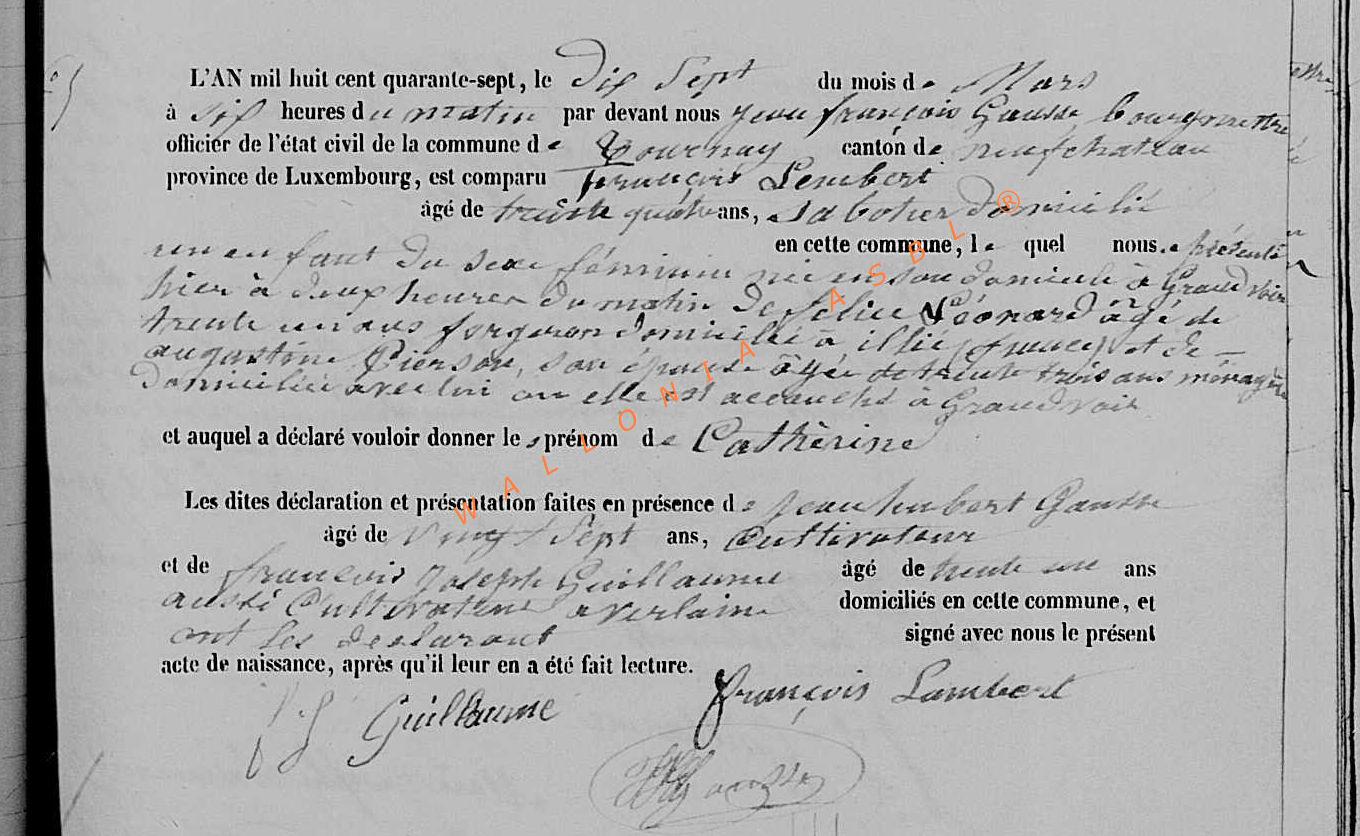 L'AN mil huit cent quarante-sept, le dix Sept du mois de Mars
à six heures du matin par devant nous Jean françois Gausse bourgmestre
officier de l'état civil de la commune de Tournay canton de neufchateau
province de Luxembourg, est comparu françois Lembert
âgé de trente quatre ans, Sabotier domicilié
en cette commune, le quel nous a présenté
un enfant du sexe féminin née en son domicile à Grandvoir
hier à deux heures du matin de felice Léonard âgé de
trente un ans forgeron domicilié à illie (france) et de
augustine Pierson, son épouse âgée de trente trois ans ménagère
domiciliée avec lui ou elle est accouché à Grandvoir
et auquel a déclaré vouloir donner le prénom de Cathèrine
Les dites déclaration et présentation faites en présence de jean hubert Gausse
âgé de vingt Sept ans, Cultivateur
et de françois joseph Guillaume âgé de trente un ans
aussi Cultivateur a verlaine domiciliés en cette commune, et
ont les declarant signé avec nous le présent
acte de naissance, après qu'il leur en a été fait lecture.
françois Lambert
Guillaume
Gausse
WALLONIA ASBL ®